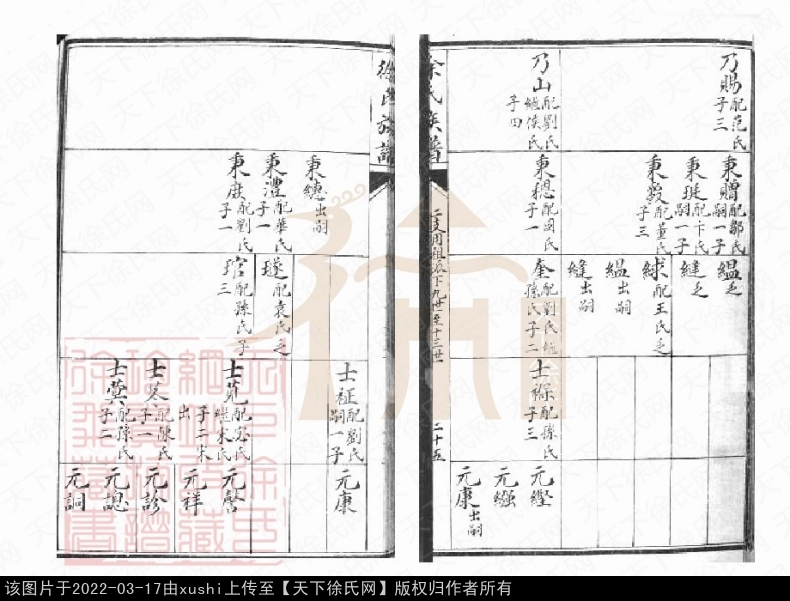 乃賜 配范氏 子三
乃山 配劉氏 繼侯氏 子四
秉贈 配鄒氏 嗣一子
秉珽 配卞氏 嗣一子
秉發 配董氏 子三
秉穏 配周氏 子一
緼 乏
縫 乏
綠 配王氏 乏
緼 出嗣
縫 出嗣
奎 配劉氏 繼孫氏 子二
士祿 配孫氏 子三
元經
元繈
元康 出嗣
徐氏族譜
二支用祖派下九世至十三世
二十五
徐氏族譜
秉德 出嗣
秉澧 配華氏 子一
秉度 配劉氏 子一
璲 配袁氏 乏
琯 配孫氏 子三
士征 配劉氏 嗣一子
士蒐 配宓氏 繼宋氏 子二 宋出
士蓉 配陳氏 子一
士蓂 配孫氏 子二
元康
元謦
元祥
元診
元認
元詞
天下徐氏网
该图片于2022-03-17由xushi上传至【天下徐氏网】版权归作者所有